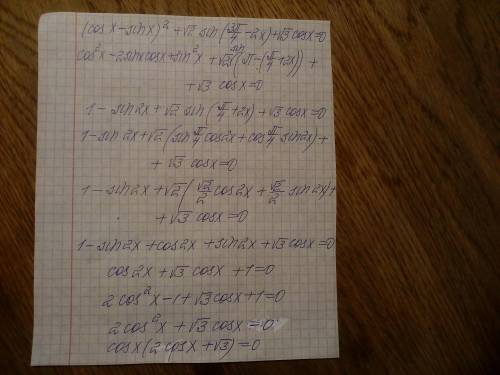 (cos x - sin x)² + √2 sin(3π/4 - 2x) + √3 cos x = 0
cos²x - 2sinx cosx + sin²x + √2 sin(π - (π/4 + 2x)) +
+ √3 cosx = 0
1 - sin2x + √2 sin(π/4 + 2x) + √3 cosx = 0
1 - sin 2x + √2 (sin π/4 cos2x + cos π/4 sin2x) +
+ √3 cosx = 0
1 - sin2x + √2 (√2/2 cos2x + √2/2 sin2x) +
+ √3 cosx = 0
1 - sin2x + cos2x + sin2x + √3 cosx = 0
cos2x + √3 cosx + 1 = 0
2cos²x - 1 + √3 cosx + 1 = 0
2cos²x + √3 cosx = 0
cosx(2cosx + √3) = 0